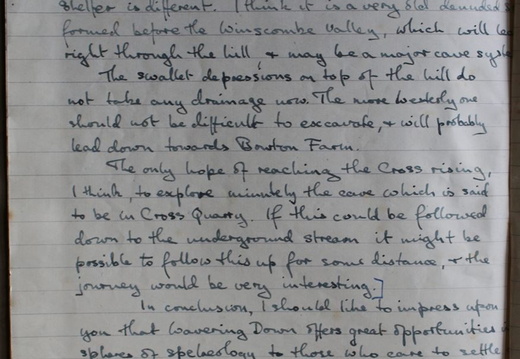 shelter is different. I think it is a very old denuded s
formed before the Winscombe Valley, which will lea
right through the hill, & may be a major cave syste
The swallet depressions on top of the hill do
not take any drainage now. The more westerly one
should not be difficult to excavate, & will probably
lead down towards Bourton Farm.
The only hope of reaching the Cross rising,
I think, to explore minutely the cave which is said
to be in Cross Quarry. If this could be followed
down to the underground stream it might be
possible to follow this up for some distance, & the
journey would be very interesting.]
In conclusion, I should like to impress upon
you that Wavering Down offers great opportunities
sphere of speleology to those who care to settle